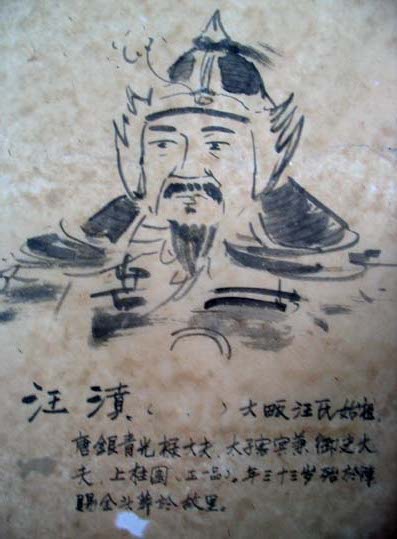 汪 濆 ( . . ) 大畈汪氏始祖,
唐銀青光禄大夫、太子客宾兼御史大
夫、上柱國(正一品)。年三十三岁殁於陣
賜金头葬於故里。